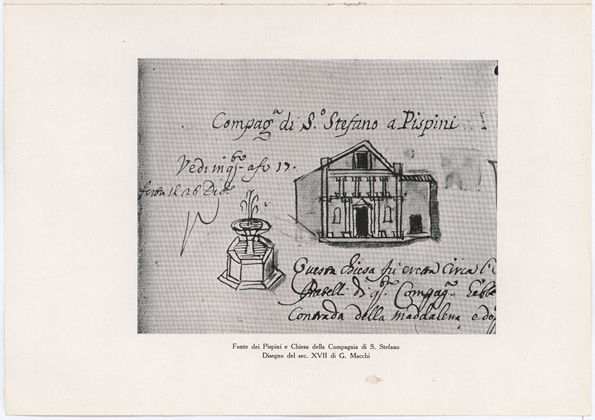 Compag.ª di S.º Stefano a Pispini
Vedi in q.º a fo 17.
26 Dic.
Questa chiesa fu eretta circa
Fratelli di q.ª Compag.ª
Contrada della Maddalena, e do
Fonte dei Pispini e Chiesa della Compagnia di S. Stefano
Disegno del sec. XVII di G. Macchi